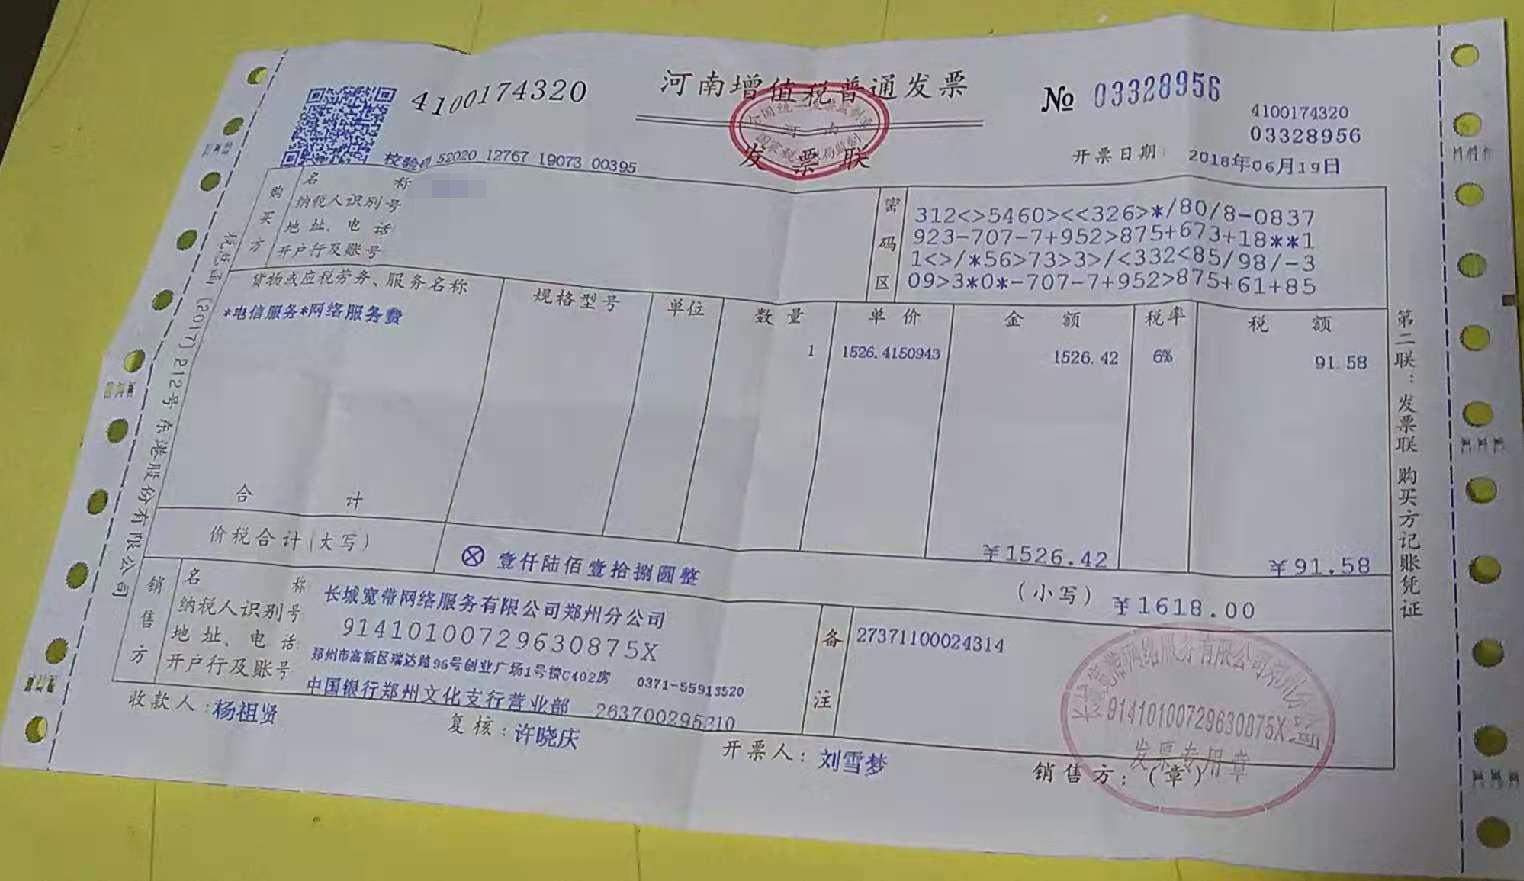 4100174320
河南增值税普通发票
发票联
№ 03328956
4100174320
03328956
校验码 52020 12767 19073 00395
开票日期: 2018年06月19日
购买方
名称
纳税人识别号
地址、电话
开户行及账号
密码区
312<>5460><<326>*/80/8-0837
923-707-7+952>875+673+18**1
1<>/*56>73>3>/<332<85/98/-3
09>3*0*-707-7+952>875+61+85
货物或应税劳务、服务名称 规格型号 单位 数量 单价 金额 税率 税额
*电信服务*网络服务费 1 1526.4150943 1526.42 6% 91.58
合计 ¥1526.42 ¥91.58
价税合计(大写) ⊗ 壹仟陆佰壹拾捌圆整 (小写) ¥1618.00
销售方
名称 长城宽带网络服务有限公司郑州分公司
纳税人识别号 91410100729630875X
地址、电话 郑州市高新区瑞达路96号创业广场1号楼C402房 0371-55913520
开户行及账号 中国银行郑州文化支行营业部 263700296210
备注
27371100024314
收款人: 杨祖贤 复核: 许晓庆 开票人: 刘雪梦 销售方: (章)
长城宽带网络服务有限公司郑州分公司
91410100729630875X
发票专用章
第二联: 发票联 购买方记账凭证
(2017) 212号 东港股份有限公司